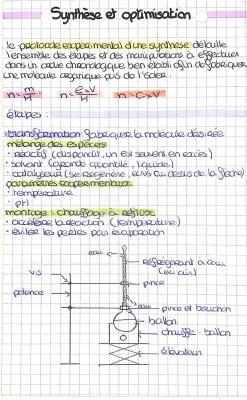 Synthèse et optimisation
le protocole expérimental d'une synthèse détaille
l'ensemble des étapes et des manipulations à effectuer
dans un ordre chronologique bien établi afin de fabriquer
une molécule organique puis de l'isoler.
n = m/M n = ρxV/M n = CxV
étapes :
transformation : fabriquer la molécule désirée
mélange des espèces
• réactif (disponible, un est souvent en excès)
• solvant (grande quantité, liquide)
• catalyseur (se régénère, écris au dessus de la flèche)
paramètres expérimentaux
• température
• pH
montage : chauffage à reflux
• accélère la réaction (température)
• éviter les pertes par évaporation
eau
réfrigérant à eau
(ou air)
vis
pince
potence
eau
pince et bouchon
ballon
chauffe-ballon
élévateur